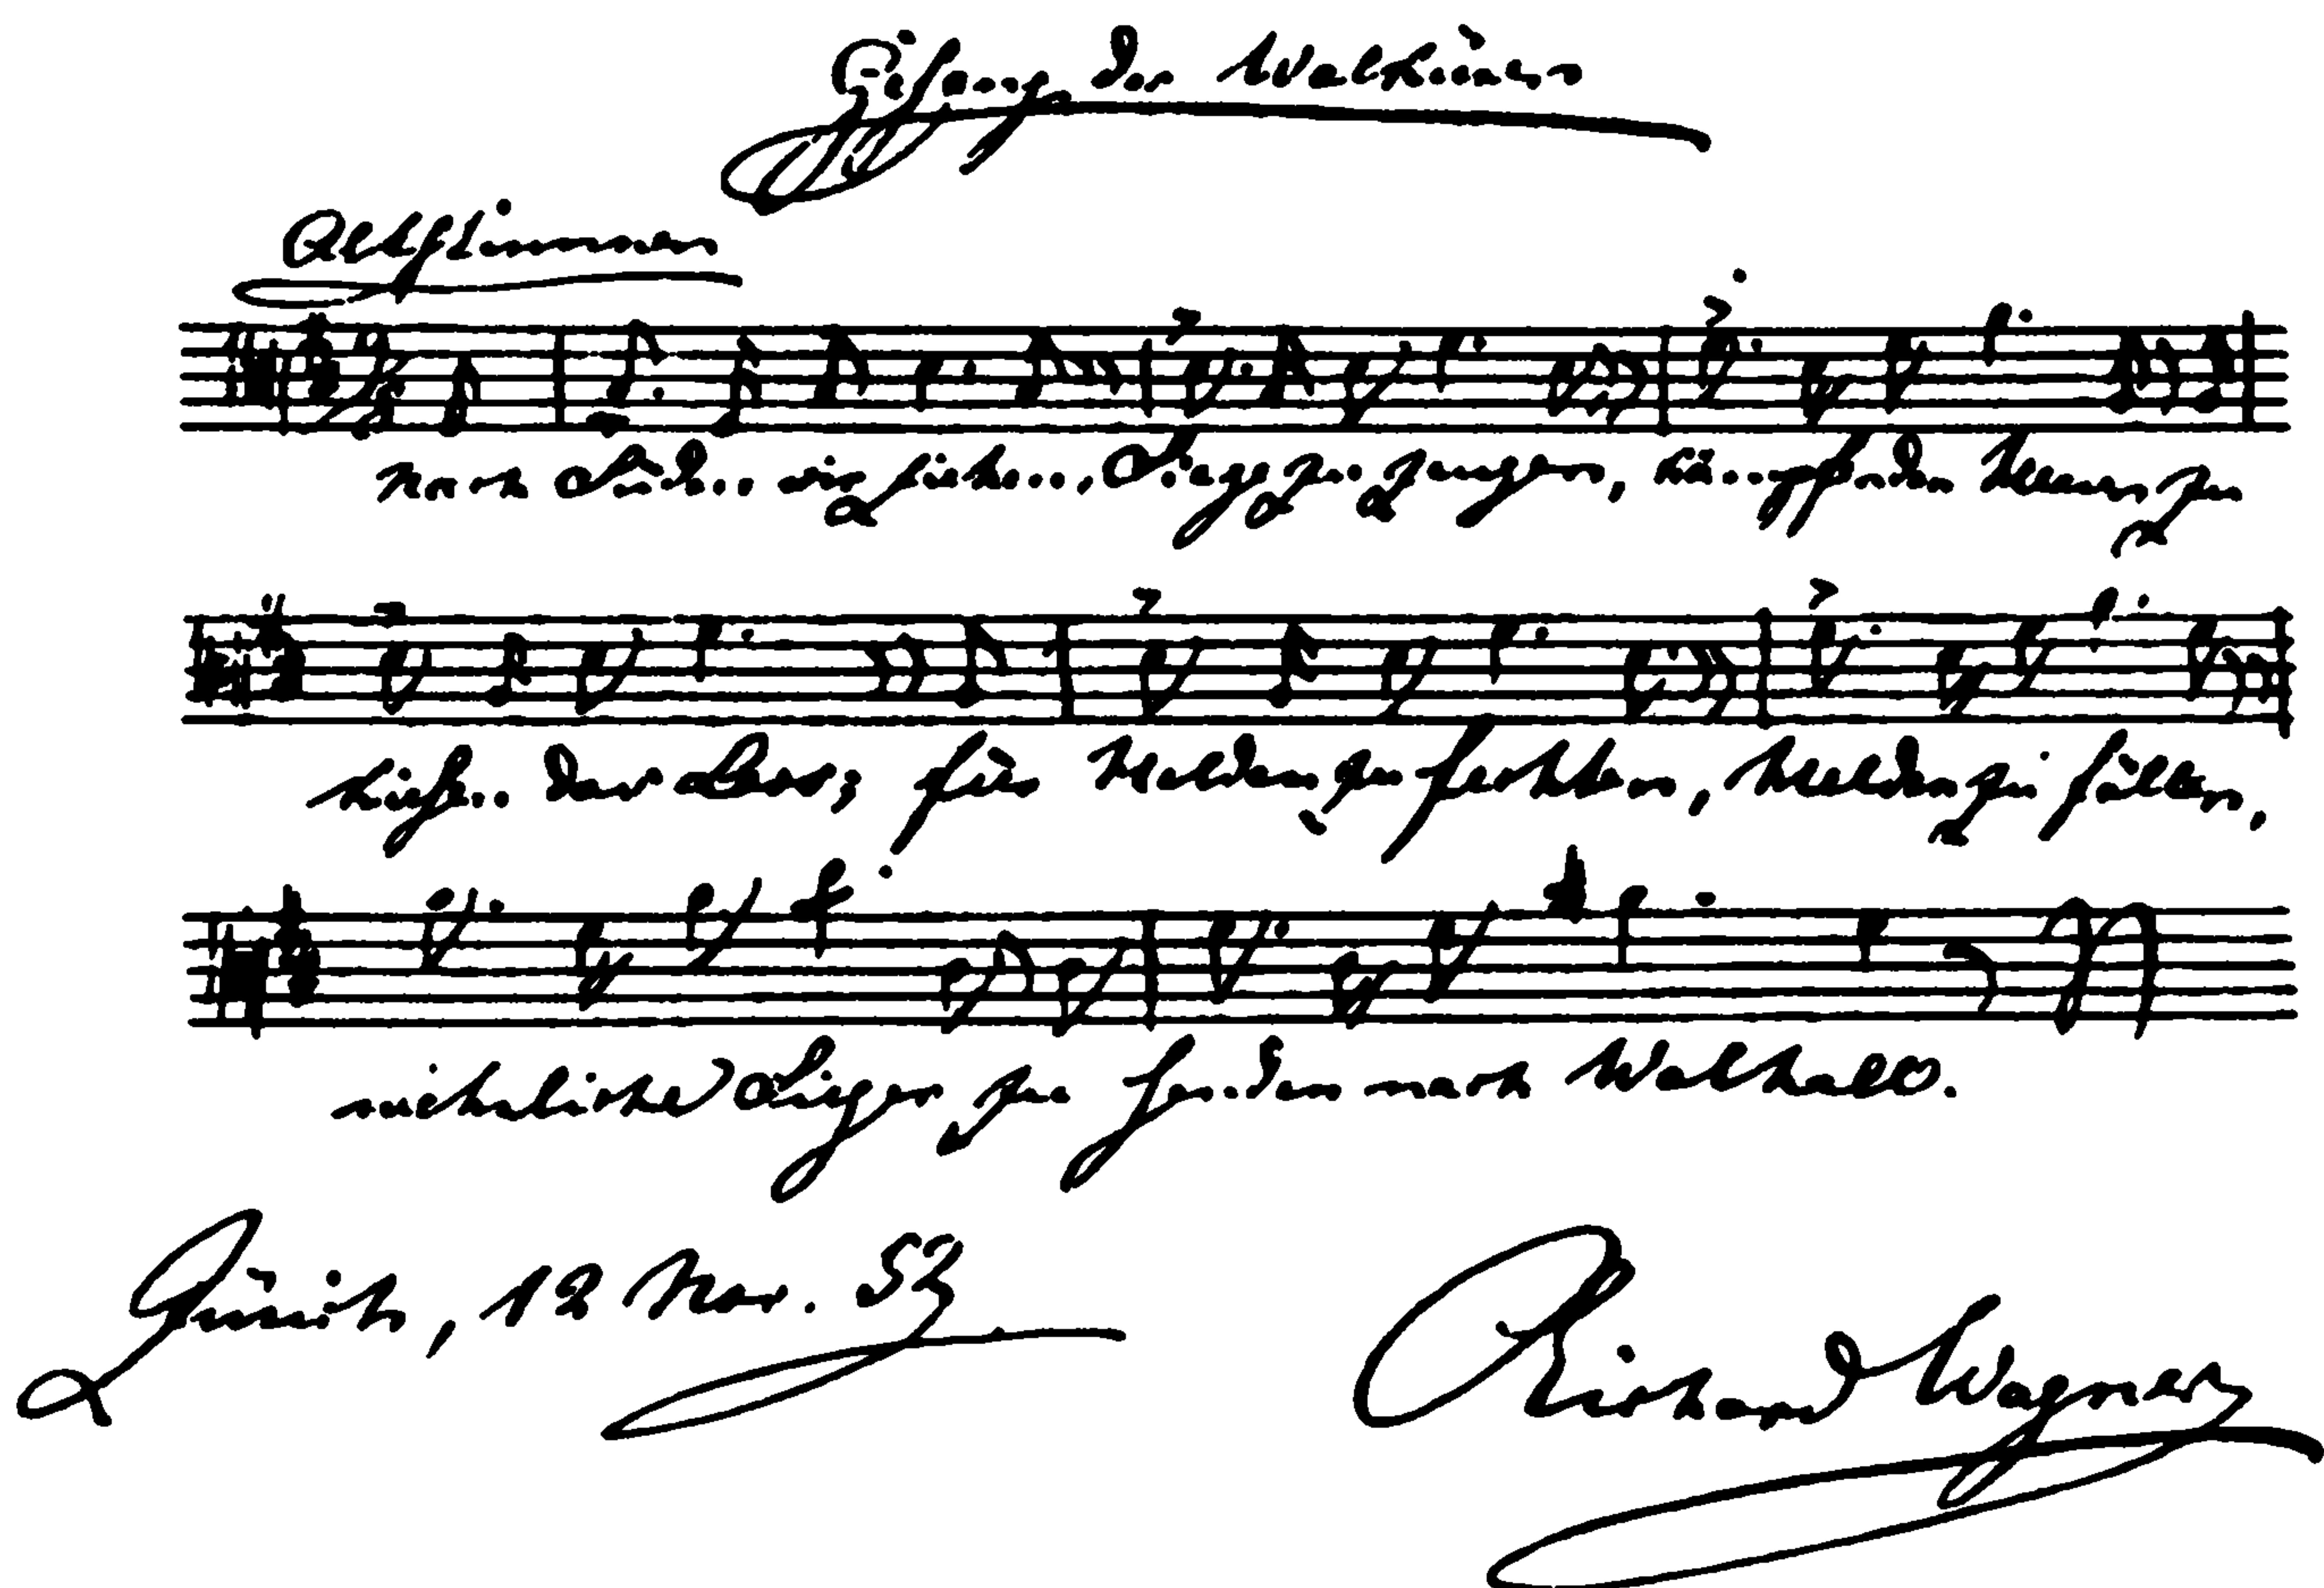 Gesang der Walküren
Altstimmen
Nach Süd.. wir ziehe..., Sieg zu zeugen, kä..mpfenden Heeren zu
kiesen.. das Loos; für Helden zu fechten, Helden zu fällen,
Sieger zu senden nach Walhall.
Zürich, 12 Nov. 53
Richard Wagner